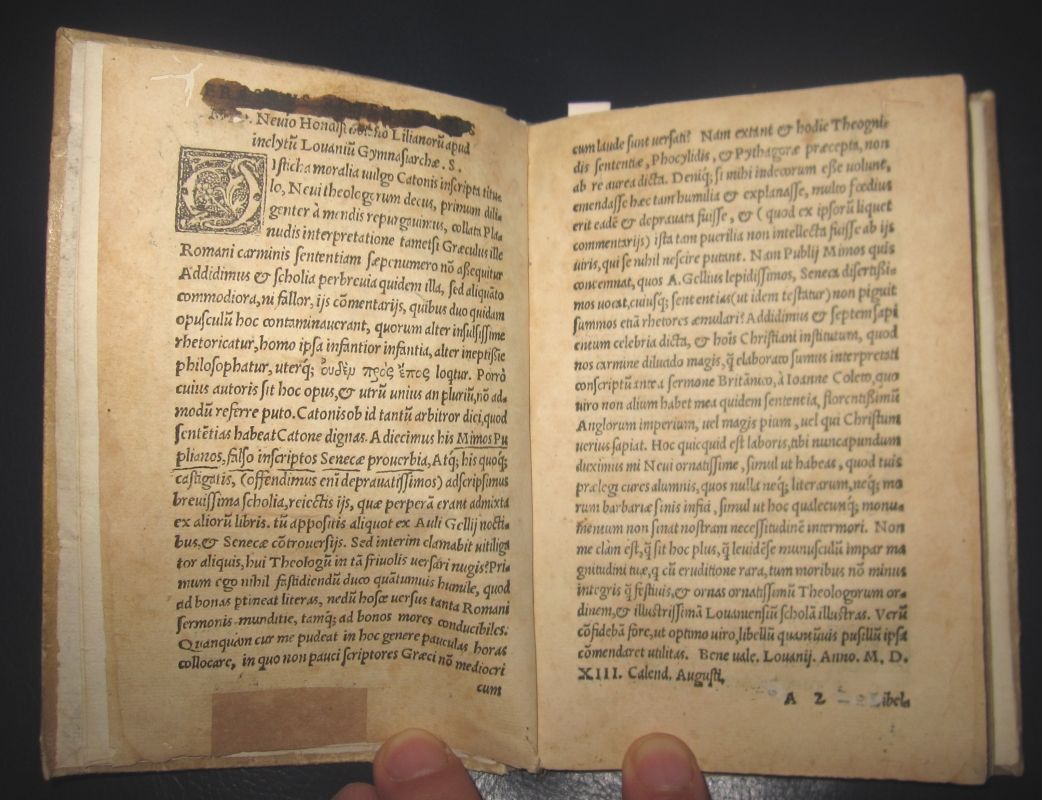 M. Nevio Hondisc Lilianorũ apud
inclytũ Louaniũ Gymnasiarchæ. S.
DIsticha moralia uulgo Catonis inscripta titu-
lo, Neui theologorum decus, primum dili-
genter à mendis repurgauimus, collata Pla-
nudis interpretatione tametsi Græculus ille
Romani carminis sententiam sæpenumero nõ assequitur
Addidimus & scholia perbreuia quidem illa, sed aliquãto
commodiora, ni fallor, ijs cõmentarijs, quibus duo quidam
opusculũ hoc contaminauerant, quorum alter insulsissime
rhetoricatur, homo ipsa infantior infantia, alter ineptissie
philosophatur, uterq; οὐδὲν πρὸς ἔπος loqtur. Porrò
cuius autoris sit hoc opus, & utrũ unius an pluriũ, nõ ad-
modũ referre puto. Catonis ob id tantũ arbitror dici, quod
sentẽtias habeat Catone dignas. Adiecimus his Mimos Pu
plianos, falso inscriptos Senecæ prouerbia, Atq; his quoq;
castigatis, (offendimus enĩ deprauatissimos) adscripsimus
breuissima scholia, reiectis ijs, quæ perperã erant admixta
ex aliorũ libris. tũ appositis aliquot ex Auli Gellij nocti-
bus, & Senecæ cõtrouersijs. Sed interim clamabit uitiliga
tor aliquis, hui Theologũ in tã friuolis uersari nugis? Pri-
mum ego nihil fastidiendũ duco quãtumuis humile, quod
ad bonas ptineat literas, nedũ hosce uersus tanta Romani
sermonis munditie, tamq; ad bonos mores conducibiles.
Quanquam cur me pudeat in hoc genere pauculas horas
collocare, in quo non pauci scriptores Græci nõ mediocri
cum
cum laude sunt uersati? Nam extant & hodie Theogni-
dis sententiæ, Phocylidis, & Pythagoræ præcepta, non
ab re aurea dicta. Deniq; si mihi indecorum esse uolunt,
emendasse hæc tam humilia & explanasse, multo fœdius
erit eadẽ & deprauata fuisse, & (quod ex ipsorũ liquet
commentarijs) ista tam puerilia non intellecta fuisse ab ijs
uiris, qui se nihil nescire putant. Nam Publij Mimos quis
concemnat, quos A. Gellius lepidissimos, Seneca disertissi-
mos uocat, cuiusq; sententias (ut idem testatur) non piguit
summos etiã rhetores æmulari? Addidimus & septem sapi
entum celebria dicta, & hoĩs Christiani institutum, quod
nos carmine dilucido magis, q̃ elaborato sumus interpretati
conscriptũ ante a sermone Britãnico, à Ioanne Coleto, quo
uiro non alium habet mea quidem sententia, florentissimũ
Anglorum imperium, uel magis pium, uel qui Christum
uerius sapiat. Hoc quicquid est laboris, tibi nuncupandum
duximus mi Neui ornatissime, simul ut habeas, quod tuis
prælegi cures alumnis, quos nulla neq; literarum, neq; mo
rum barbariæ sinis infici, simul ut hoc qualecunq; monu-
mentum non sinat nostram necessitudinẽ intermori. Non
me clàm est, q̃ sit hoc plus, q̃ leuidẽse munusculũ impar ma
gnitudini tuæ, q cũ eruditione rara, tum moribus nõ minus
integris q̃ festiuis, & ornas ornatissimũ Theologorum or-
dinem, & illustrissimã Louaniensiũ scholã illustras. Verũ
cõfidebã fore, ut optimo uiro, libellũ quantũuis pusillũ ipsa
cõmendaret utilitas. Bene uale. Louanij. Anno. M. D.
XIII. Calend. Augusti.
A 2 Libel-